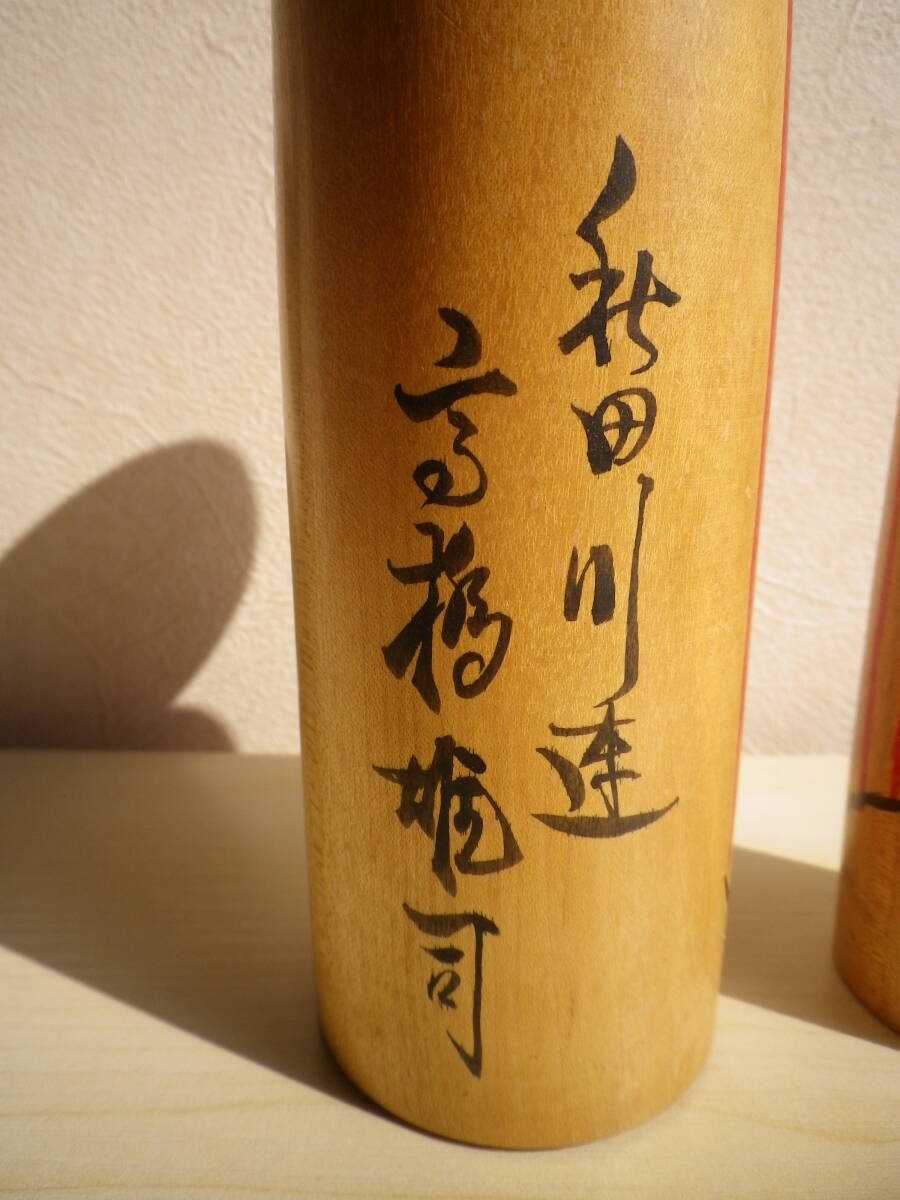 秋田川連
高橋雄司